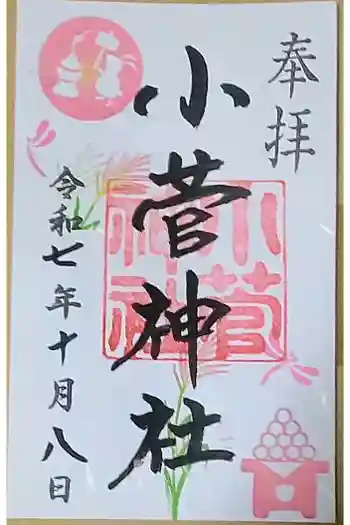 奉拝
小菅神社
小菅
神社
令和七年十月八日